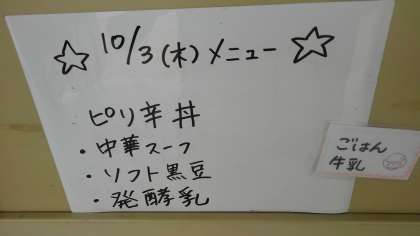 ☆ 10/3(木)メニュー ☆
ピリ辛丼
・中華スープ
・ソフト黒豆
・発酵乳
ごはん
牛乳